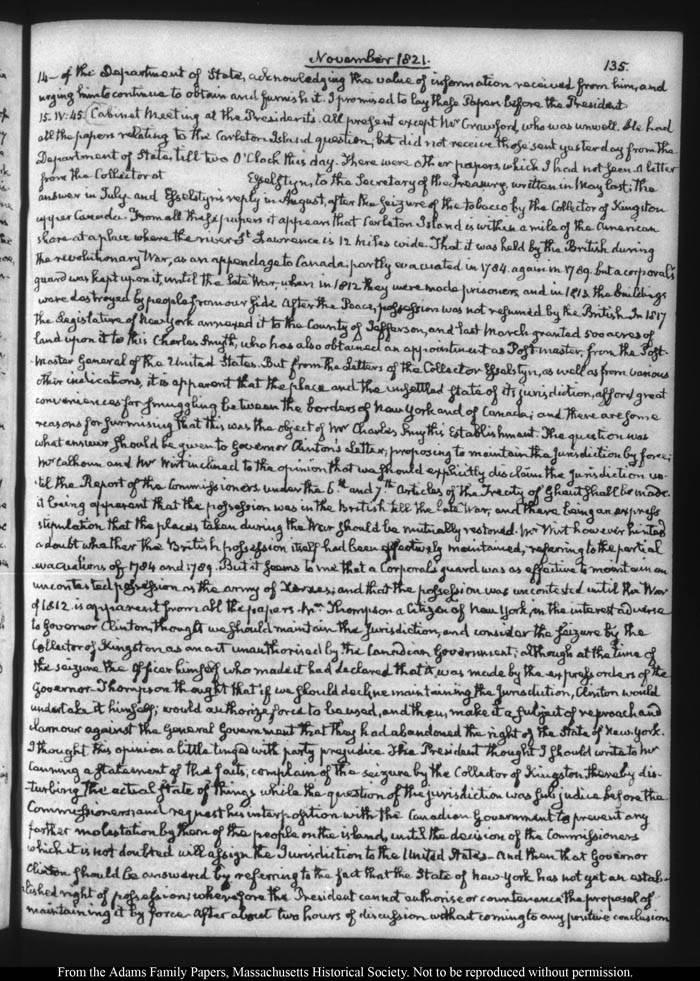 November 1821.
135.
14 - of the Department of State, acknowledging the value of information received from him, and
urging him to continue to obtain and furnish it. I promised to lay these Papers before the President
15. IV:45. Cabinet Meeting at the President's. All present except Mr Crawford, who was unwell. He had
all the papers relating to the Carleton Island question, but did not receive those sent yesterday from the
Department of State, till two O'Clock this day. There were other papers which I had not seen. A letter
from the Collector at Esselstyn, to the Secretary of the Treasury, written in May last; the
answer in July and Esselstyn's reply in August, after the seizure of the tobacco by the Collector of Kingston
upper Canada. From all these papers it appears that Carleton Island is within a mile of the American
shore at a place where the river St Lawrence is 12 miles wide. That it was held by the British during
the revolutionary War, as an appendage to Canada, partly evacuated in 1784. again in 1789. but a corporal's
guard was kept upon it, until the late War, when in 1812 they were made prisoners, and in 1813. the buildings
were destroyed by people from our side After the Peace, possession was not resumed by the British. In 1817
the Legislature of New York annexed it to the County of Jefferson, and last March granted 500 acres of
land upon it to this Charles Smyth, who has also obtained an appointment as Post master, from the Post-
Master General of the United States. But from the Letters of the Collector Esselstyn, as well as from various
other indications, it is apparent that the place and the unsettled State of its jurisdiction, afford great
conveniences for smuggling between the borders of New York and of Canada; and there are some
reasons for surmising that this was the object of Mr Charles Smyth's Establishment. The question was
what answer should be given to Governor Clinton's Letter, proposing to maintain the Jurisdiction by force;
Mr Calhoun and Mr Wirt inclined to the opinion that we should explicitly disclaim the Jurisdiction un-
til the Report of the Commissioners under the 6th and 7th Articles of the Treaty of Ghent shall be made
it being apparent that the possession was in the British till the late War, and there being an express
stipulation that the places taken during the War should be mutually restored. Mr Wirt however hinted
a doubt whether the British possession itself had been effectively maintained, referring to the partial
evacuations of 1784 and 1789. But it seems to me that a Corporal's guard was as effective to maintain an
uncontested possession as the army of Xerxes; and that the possession was uncontested until the War
of 1812 is apparent from all the papers. Mr Thompson a Citizen of New York, in the interest adverse
to Governor Clinton, thought we should maintain the Jurisdiction, and consider the seizure by the
Collector of Kingston as an act unauthorised by the Canadian Government; although at the time of
the seizure the Officer himself who made it had declared that it was made by the express orders of the
Governor - Thompson thought that if we should decline maintaining the Jurisdiction, Clinton would
undertake it himself; would authorize force to be used, and then, make it a subject of reproach and
clamour against the General Government that they had abandoned the right of the State of New York.
I thought this opinion a little tinged with party prejudice. The President thought I should write to Mr
Canning a statement of the facts; complain of the seizure by the Collector of Kingston thereby dis-
turbing the actual state of things while the question of the jurisdiction was sub judice before the
Commissioners; and request his interposition with the Canadian Government to prevent any
further molestation by them of the people on the island, until the decision of the Commissioners
which it is not doubted will assign the Jurisdiction to the United States - And then that Governor
Clinton should be answered by referring to the fact that the State of New York has not yet an estab-
lished right of possession; wherefore the President cannot authorise or countenance the proposal of
maintaining it by force. After about two hours of discussion without coming to any positive conclusion
From the Adams Family Papers, Massachusetts Historical Society. Not to be reproduced without permission.